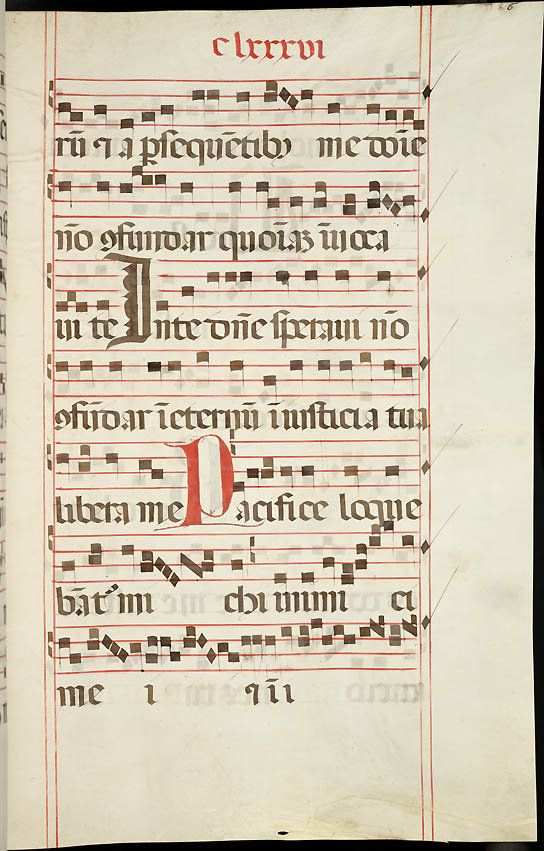 clxxxvi
rū ⁊ a ꝑsequētibꝰ me dn̄e
nō ꝯfundar quoīaꝫ īuoca
ui te In te dn̄e speraui nō
ꝯfūdar ī eternū ī iusticia tua
libera me Pacifice loque
bāt᷑ mi chi inimi ci
me i ⁊ īi